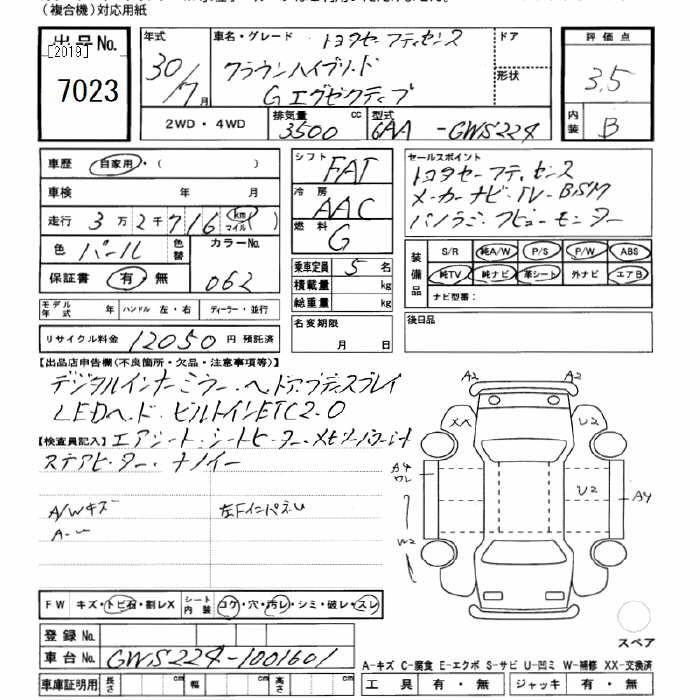 (複合機)対応用紙
出品No.
[2019]
7023
年式
30/7月
車名・グレード
トヨタセーフティセンス
クラウンハイブリード
Gエグゼクティブ
ドア
形状
評価点
3.5
内装
B
2WD・4WD
排気量
3500 cc
型式
6AA-GWS224
車歴
自家用・( )
車検 年 月
走行 3万2千716 km マイル ( )
色 パール
色替
カラーNo.
062
保証書 有・無
モデル年式 年
ハンドル 左・右
ディーラー・並行
リサイクル料金 12050 円 預託済
シフト
FAT
冷房
AAC
燃料
G
乗車定員 5 名
積載量 kg
総重量 kg
名変期限
月 日
セールスポイント
トヨタセーフティセンス
メーカーナビ・TV・BSM
パノラミックビューモニター
装備品
S/R 純A/W P/S P/W ABS
純TV 純ナビ 革シート 外ナビ エアB
ナビ型番:
後日品
【出品店申告欄(不良箇所・欠品・注意事項等)】
デジタルインナーミラー・ヘッドアップディスプレイ
LEDヘッド・ビルトインETC2.0
【検査員記入】エアシート・シートヒーター・メモリーパワーシート
ステアヒーター・ナノイー
A/Wキズ
左Fインパネ
A2 A2
XA U2
A4
ワレ
U2
A4
W2
FW キズ・トビ石・割レX
シート内装 コゲ・穴・汚レ・シミ・破レ・スレ
登録No.
車台No. GWS224-1001601
車庫証明用 長さ cm 幅 cm 高さ cm
スペア
A-キズ C-腐食 E-エクボ S-サビ U-凹ミ W-補修 XX-交換済
工具 有・無 ジャッキ 有・無